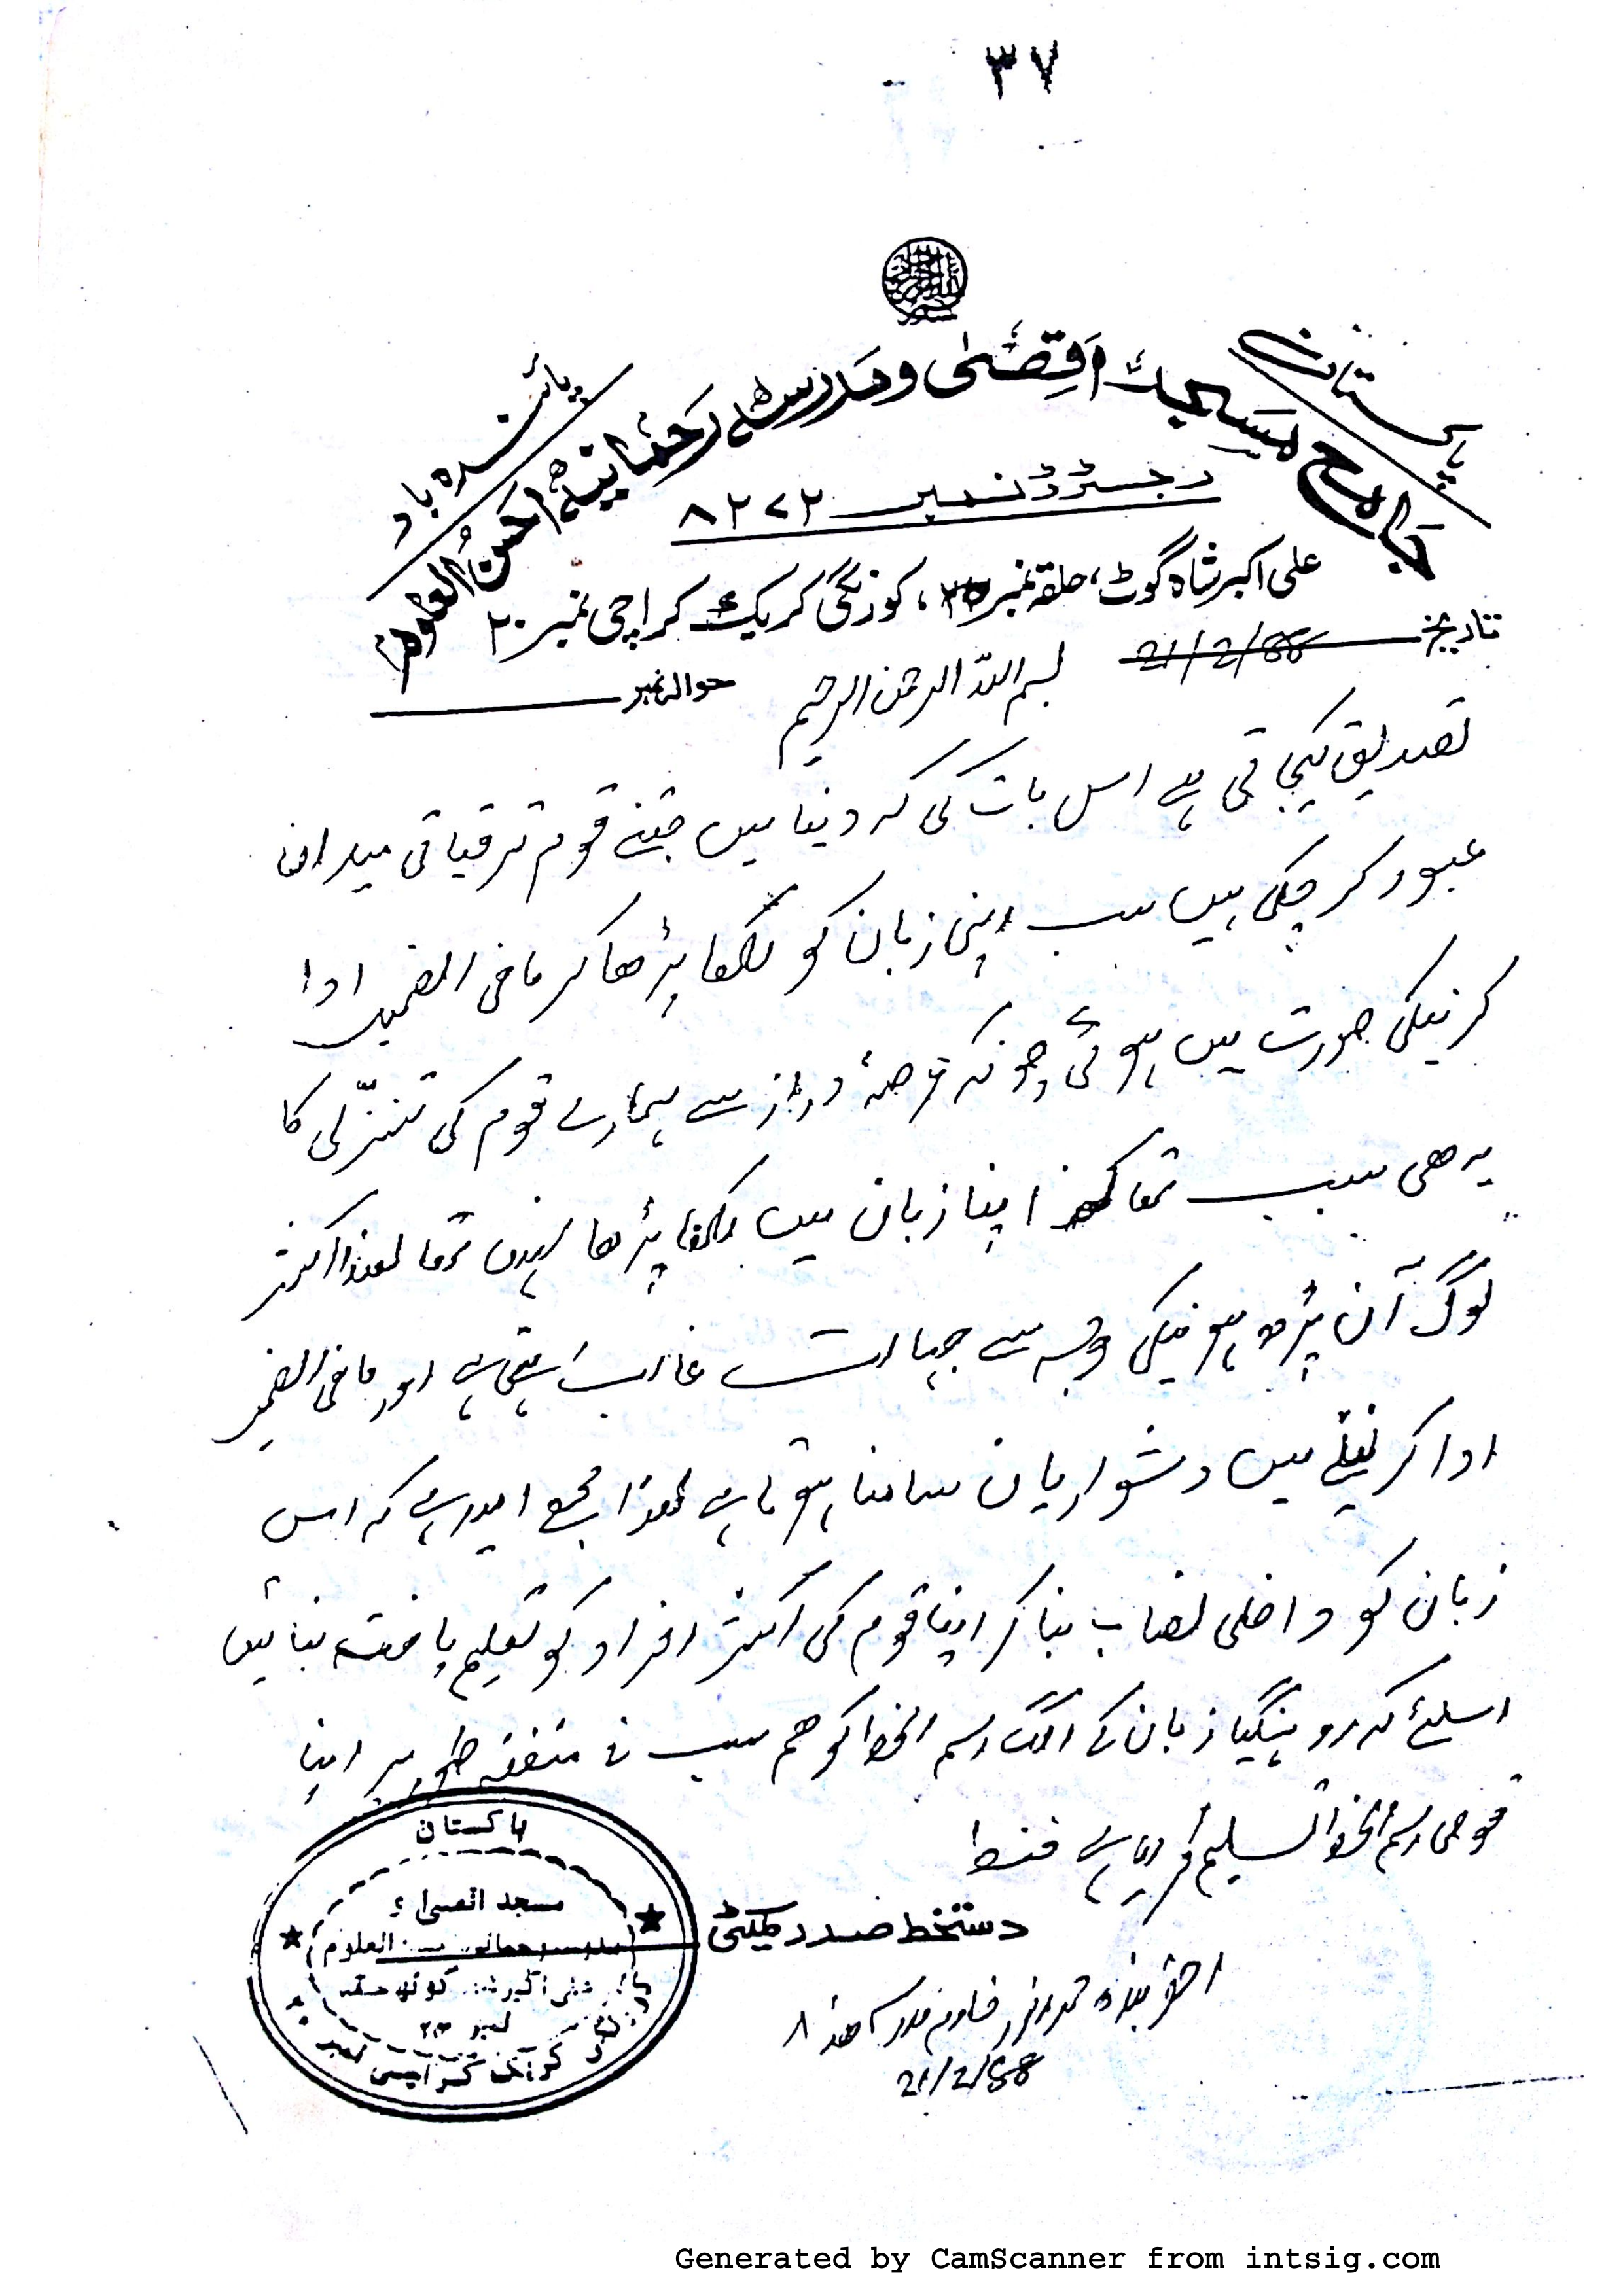 ٣٧
پاکستان
پائندہ باد
جامع مسجد اقصٰی و مدرسہ رحمانیہ احسن العلوم
رجسٹرڈ نمبر ٨٢٧٢
علی اکبر شاہ گوٹ، حلقہ نمبر ٣٥، کورنگی کریک کراچی نمبر ٢٠
تاریخ 21/2/88
حوالہ نمبر
بسم اللہ الرحمن الرحیم
تصدیق کیجاتی ہے اس بات کی کہ دینا میں جتنے قوم ترقیاتی میدان
عبور کر چکی ہیں سب اپنی زبان کو لکھا پڑھا کر مافی الضمیر ادا
کرنیکی صورت میں ہوئی چونکہ عرصۂ دراز سے ہمارے قوم کی تنزّلی کا
یہ ھی سبب تھا کہ اپنا زبان میں لکھا پڑھا نہیں تھا لھذا اکثر
لوگ آن پڑھ ہونیکی وجہ سے جہالت غالب رہتی ہے اور مافی الضمیر
ادا کرنیکے میں دشواریان سامنا ہوتا ہے لھذا مجھے امید ہے کہ اس
زبان کو داخلی نصاب بنا کر اپنا قوم کی اکثر افراد کو تعلیم یافتہ بنائیں
اسلئے کہ روہینگیا زبان کے الگ رسم الخط کو ھم سب نے متفقہ طور پر اپنا
قومی رسم الخط تسلیم کر لیا ہے فقط
دستخط صدر کمیٹی
احقر بندہ محمد خادم مدرسہ ھذا
21/2/88
پاکستان
مسجد اقصیٰ و
مدرسہ رحمانیہ العلوم
علی اکبر شاہ گوٹھ حلقہ
نمبر
کریک کراچی نمبر
Generated by CamScanner from intsig.com